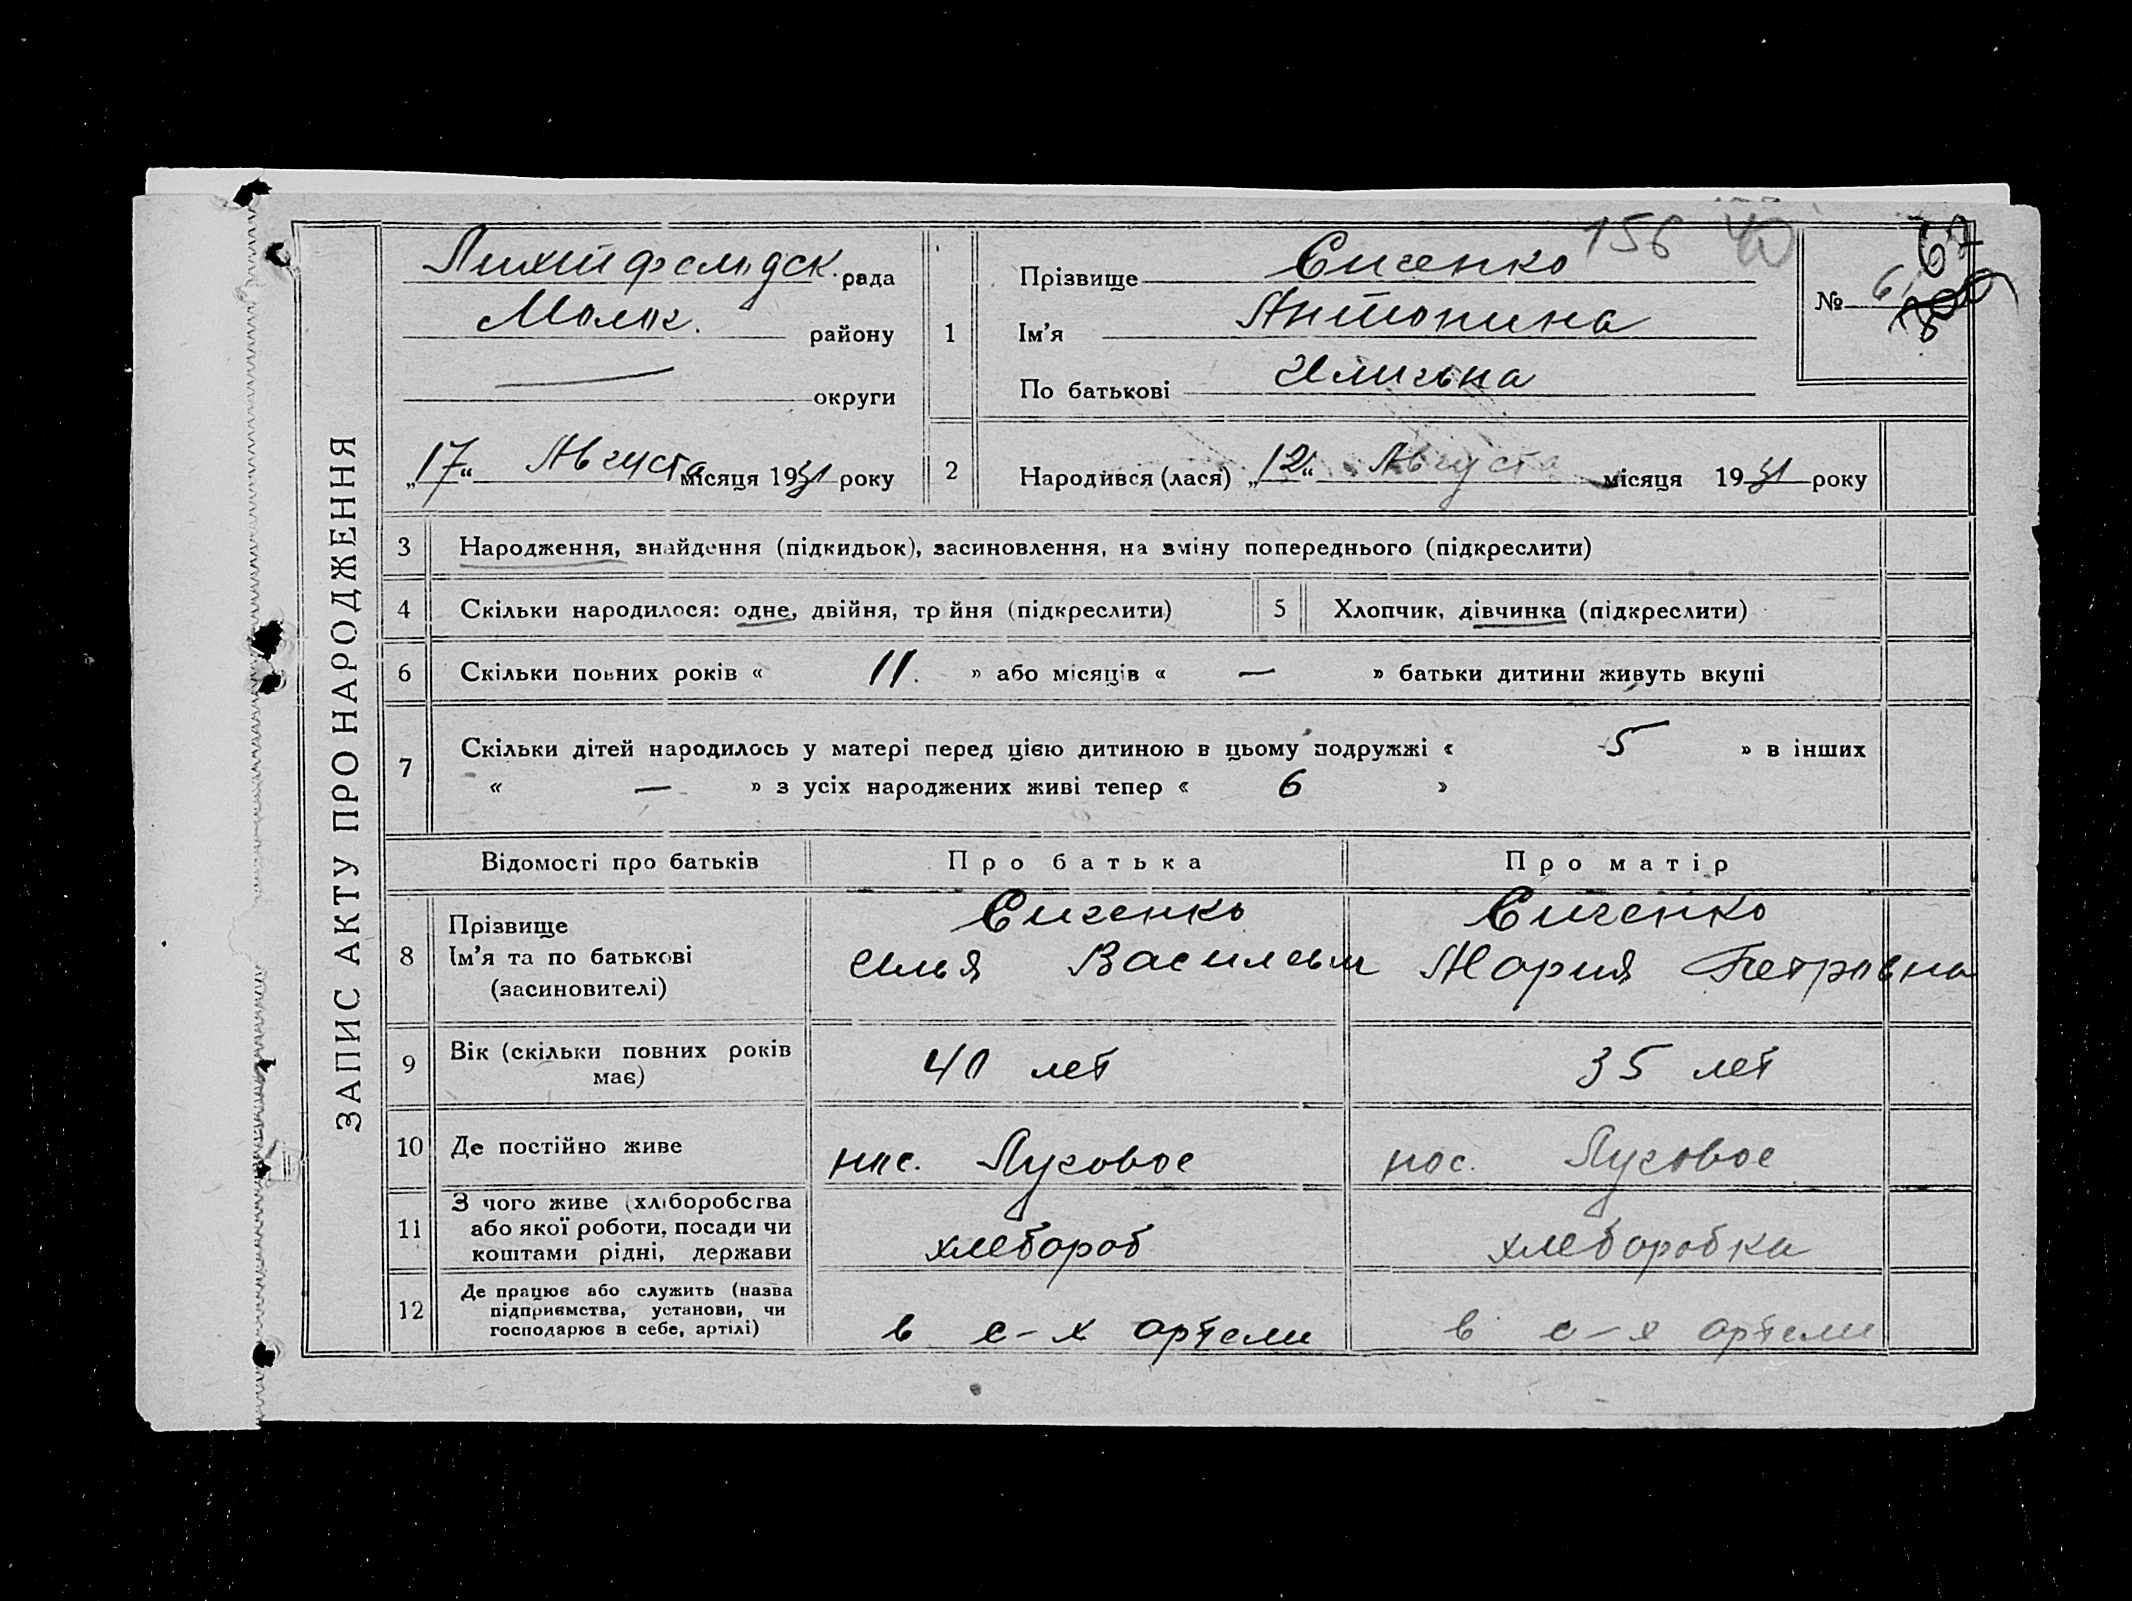 ЗАПИС АКТУ ПРО НАРОДЖЕННЯ
Лихтфельдск. рада
Молоч. району
— округи
„17“ Августа місяця 1931 року
156 40
1
Прізвище Сиченко
Ім'я Антонина
По батькові Ильична
№ 61
67
2
Народився (лася) „12“ Августа місяця 1931 року
3 Народження, знайдення (підкидьок), засиновлення, на зміну попереднього (підкреслити)
4 Скільки народилося: одне, двійня, тр йня (підкреслити) 5 Хлопчик, дівчинка (підкреслити)
6 Скільки повних років « 11. » або місяців « — » батьки дитини живуть вкупі
7 Скільки дітей народилось у матері перед цією дитиною в цьому подружжі « 5 » в інших
« — » з усіх народжених живі тепер « 6 »
Відомості про батьків Про батька Про матір
8 Прізвище Сиченко Сиченко
Ім'я та по батькові Илья Васильев Мария Петровна
(засиновителі)
9 Вік (скільки повних років має) 40 лет 35 лет
10 Де постійно живе пос. Луговое пос. Луговое
11 З чого живе (хліборобства
або якої роботи, посади чи
коштами рідні, держави хлебороб хлеборобка
12 Де працює або служить (назва
підприємства, установи, чи
господарює в себе, артілі) в с-х артели в с-х артели